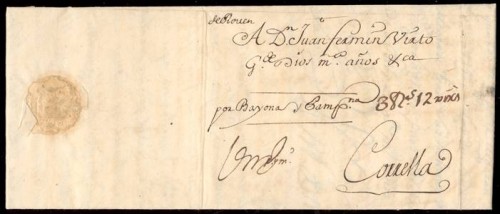 de Rouen
A Dn Juan fermin Virto
Gde Dios ms años &ca
por Bayona y Pampna
12
Corella